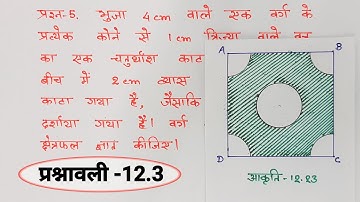 प्रश्न-5. भुजा 4cm वाले एक वर्ग के
प्रत्येक कोने से 1cm त्रिज्या वाले वृत्त
का एक चतुर्थांश काट
बीच में 2cm व्यास
काटा गया है, जैसाकि
दर्शाया गया है। वर्ग
क्षेत्रफल ज्ञात कीजिए।
प्रश्नावली -12.3
A B
D C
आकृति -12.23